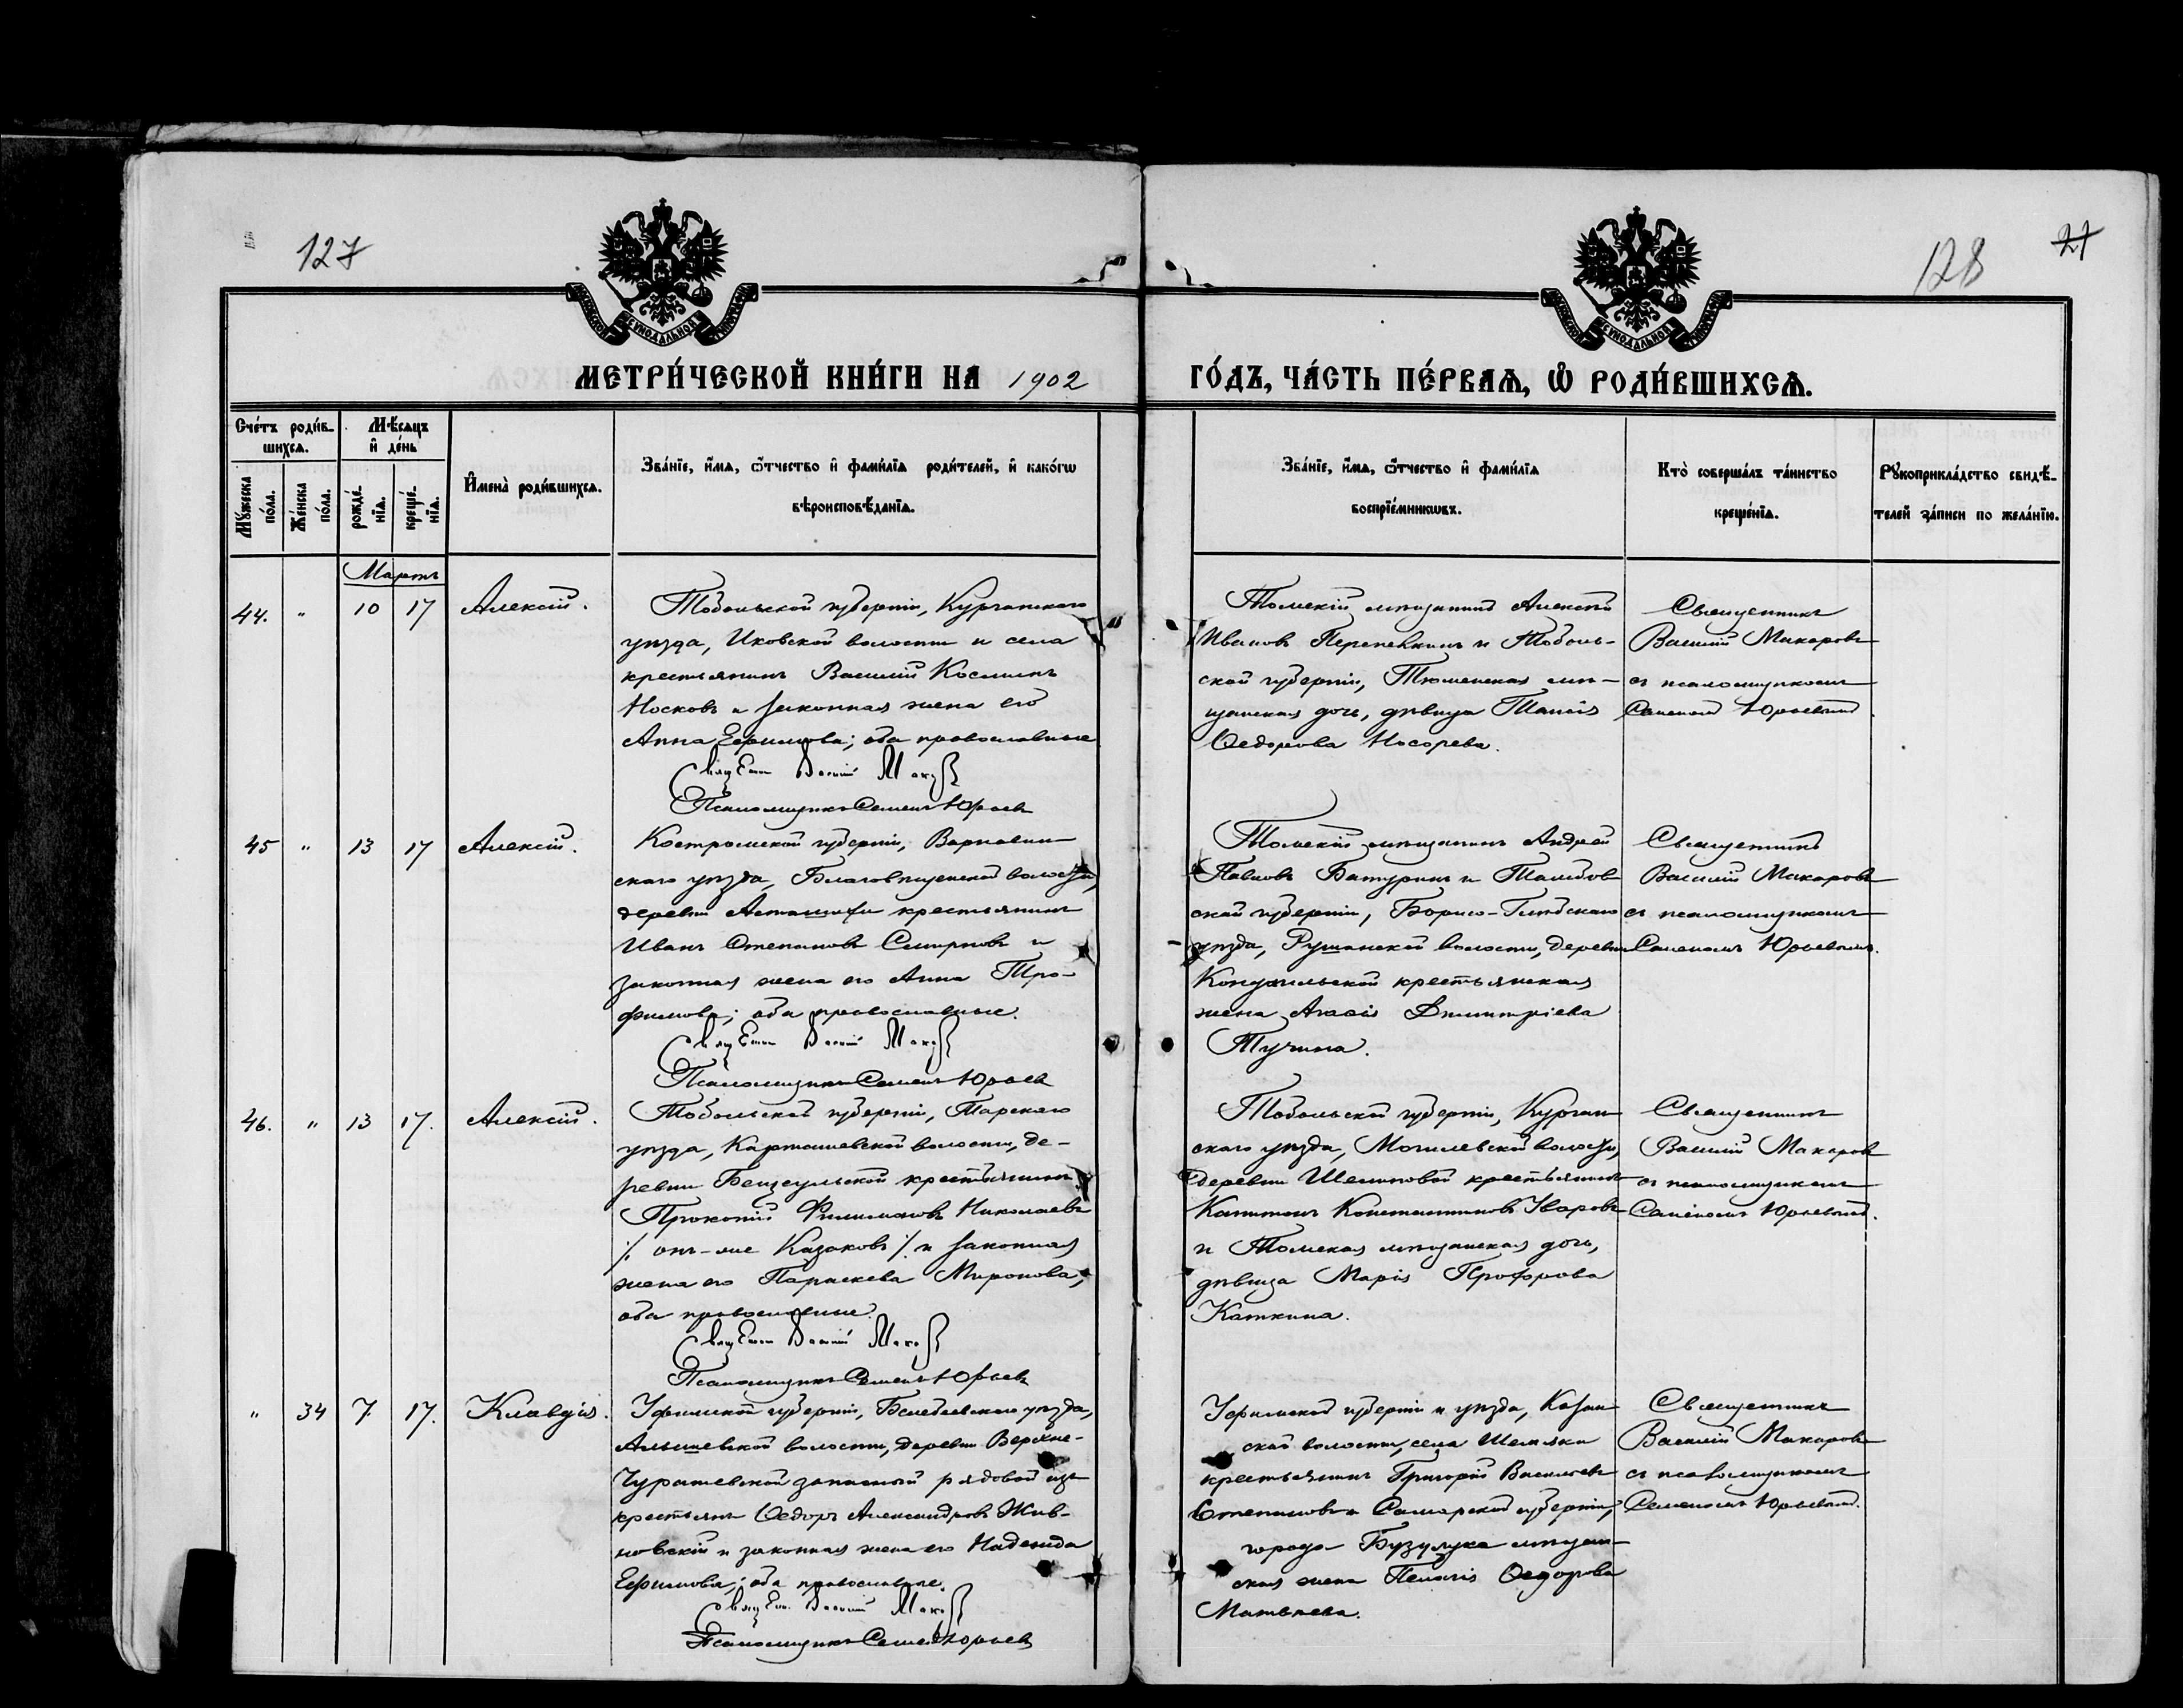 127
128
27
МЕТРИ́ЧЕСКОЙ КНИ́ГИ НА 1902
ГО́ДЪ, ЧА́СТЬ ПЕ́РВАѦ, Ѡ РОДИ́ВШИХСѦ.
Сче́тъ роди́в-
шихсѧ.
Мꙋ́жеска
по́ла.
Же́нска
по́ла.
Мѣ́сѧцъ
и҆ де́нь
рожде́-
нїѧ.
креще́-
нїѧ.
И҆мена̀ роди́вшихсѧ.
Зва́нїе, и҆́мѧ, ѻ҆́тчество и҆ фами́лїѧ роди́телей, и҆ како́гѡ
вѣроисповѣ́данїѧ.
Зва́нїе, и҆́мѧ, ѻ҆́тчество и҆ фами́лїѧ
воспрїе́мникѡвъ.
Кто̀ соверша́лъ та́инство
креще́нїѧ.
Рꙋкоприкла́дство свидѣ́-
телей за́писи по жела́нїю.
Мартъ
44. " 10 17 Алексій.
Тобольской губерніи, Курганскаго
уѣзда, Иковской волости и села
крестьянинъ Василій Косминъ
Носковъ и законная жена его
Анна Ефимова; оба православные
Священ Василій Макар
Псаломщикъ Семенъ Юрьев
Томскій мѣщанинъ Алексѣй
Ивановъ Перепелкинъ и Тоболь-
ской губерніи, Тюменская мѣ-
щанская дочь, дѣвица Таисія
Ѳедорова Носорева.
Священникъ
Василій Макаровъ
съ псаломщикомъ
Семеномъ Юрьевымъ.
45 " 13 17 Алексій.
Костромской губерніи, Варнавин-
скаго уѣзда, Благовѣщенской волости,
деревни Асташихи крестьянинъ
Иванъ Степановъ Смирновъ и
законная жена его Анна Тро-
фимова; оба православные.
Священ Василій Макар
Псаломщикъ Семенъ Юрьев
Томскій мѣщанинъ Андрей
Павловъ Батуринъ и Тамбов-
ской губерніи, Борисо-Глѣбскаго
уѣзда, Русанской волости, деревни
крестьянская
жена Агаѳія Димитріева
Тучина.
Священникъ
Василій Макаровъ
съ псаломщикомъ
Семеномъ Юрьевымъ.
46. " 13 17. Алексій.
Тобольской губерніи, Тарскаго
уѣзда, Карташевской волости, де-
ревни крестьянинъ
Прокопій Филимоновъ Николаевъ
/. онъ-же Казаковъ ./ и законная
жена его Параскева Миронова,
оба православные.
Священ Василій Макар
Псаломщикъ Семенъ Юрьевъ
Тобольской губерніи, Курган-
скаго уѣзда, Могилевской волости,
деревни Шелиповой крестьянинъ
Капитонъ Константиновъ Уваровъ
и Томская мѣщанская дочь,
дѣвица Марія Прохорова
Каткина.
Священникъ
Василій Макаровъ
съ псаломщикомъ
Семеномъ Юрьевымъ.
" 34 7 17. Клавдія.
Уфимской губерніи, Белебеевскаго уѣзда,
Альшеевской волости, деревни Верхне-
Чурашевской запасный рядовой изъ
крестьянъ Ѳедоръ Александровъ Жив-
новскій и законная жена его Надежда
Ефимова; оба православные.
Священ. Василій Макар
Псаломщикъ Семенъ Юрьевъ
Уфимской губерніи и уѣзда, Казан-
ской волости, села Шемяки
крестьянинъ Григорій Васильевъ
Степановъ и Самарской губерніи,
города Бузулука мѣщан-
ская жена Пелагія Ѳедорова
Матвѣева.
Священникъ
Василій Макаровъ
съ псаломщикомъ
Семеномъ Юрьевымъ.